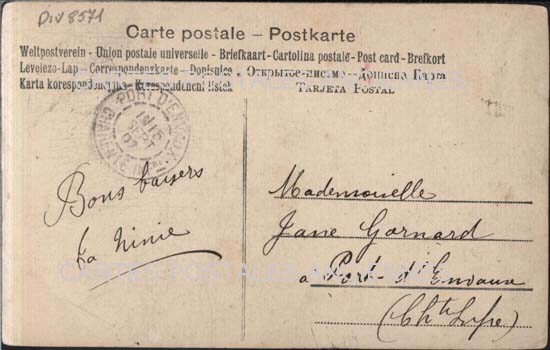 DIV 8571
Carte postale – Postkarte
Weltpostverein - Union postale universelle - Briefkaart - Cartolina postale - Post card - Brefkort
Levelezo-Lap - Correspondenzkarte - Dopisnica - Открытое письмо - Дописна Карта
Karta korespondencyjna - Korespondencni listek
TARJETA POSTAL
PORT D'ENVAUX
15
SEPT
07
CHARENTE INFRE
Bons baisers
La Ninie
Mademoiselle
Jane Gornard
a Port d'Envaux
(Chte Infre)
CARTES POSTALES